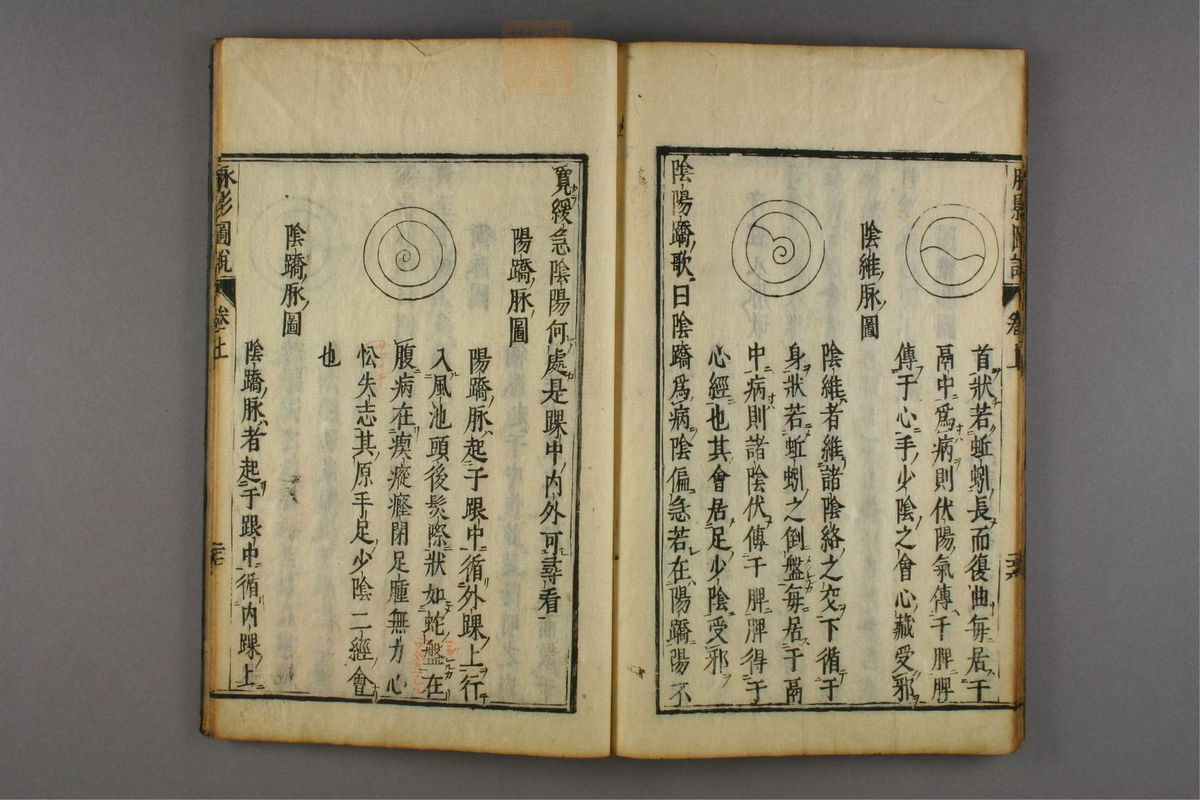 脉影圖說
卷上
首狀若蚯蚓長而復曲每居于
鬲中爲病則伏陽氣傳于脾脾
傳于心手少陰之會心藏受邪
陰維脉圖
陰維者維諸陰絡之交下循于
身狀若蚯蚓之倒盤每居于鬲
中病則諸陰伏傳于脾脾得于
心經也其會居足少陰受邪
陰陽蹻歌曰陰蹻爲病陰偏急若在陽蹻陽不
寛緩急陰陽何處是踝中內外可尋看
陽蹻脉圖
陽蹻脉起于跟中循外踝上行
入風池頭後髮際狀如蛇盤在
腹病在瘈瘲癃閉足腫無力心
忪失志其原手足少陰二經會
也
陰蹻脉圖
陰蹻脉者起于跟中循內踝上
脉影圖說
卷上